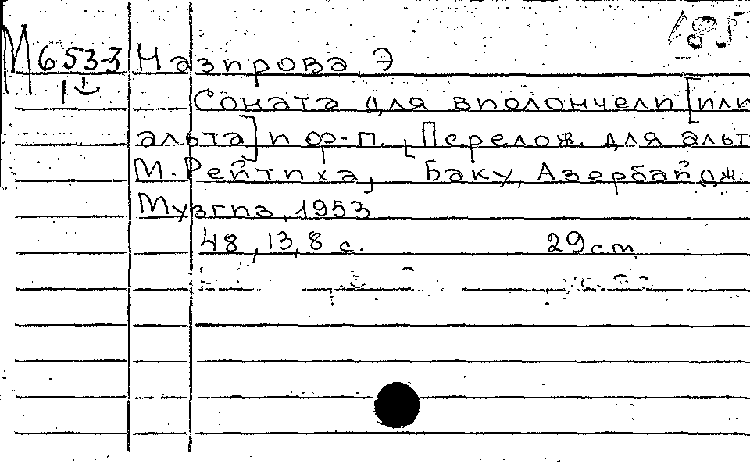 185
М 6533 Назирова Э
Соната для виолончели [или
альта] и ф-п. [Перелож. для альт
М. Рейтиха, Баку, Азербайдж.
Музгиз, 1953
48, 13, 8 с. 29cm